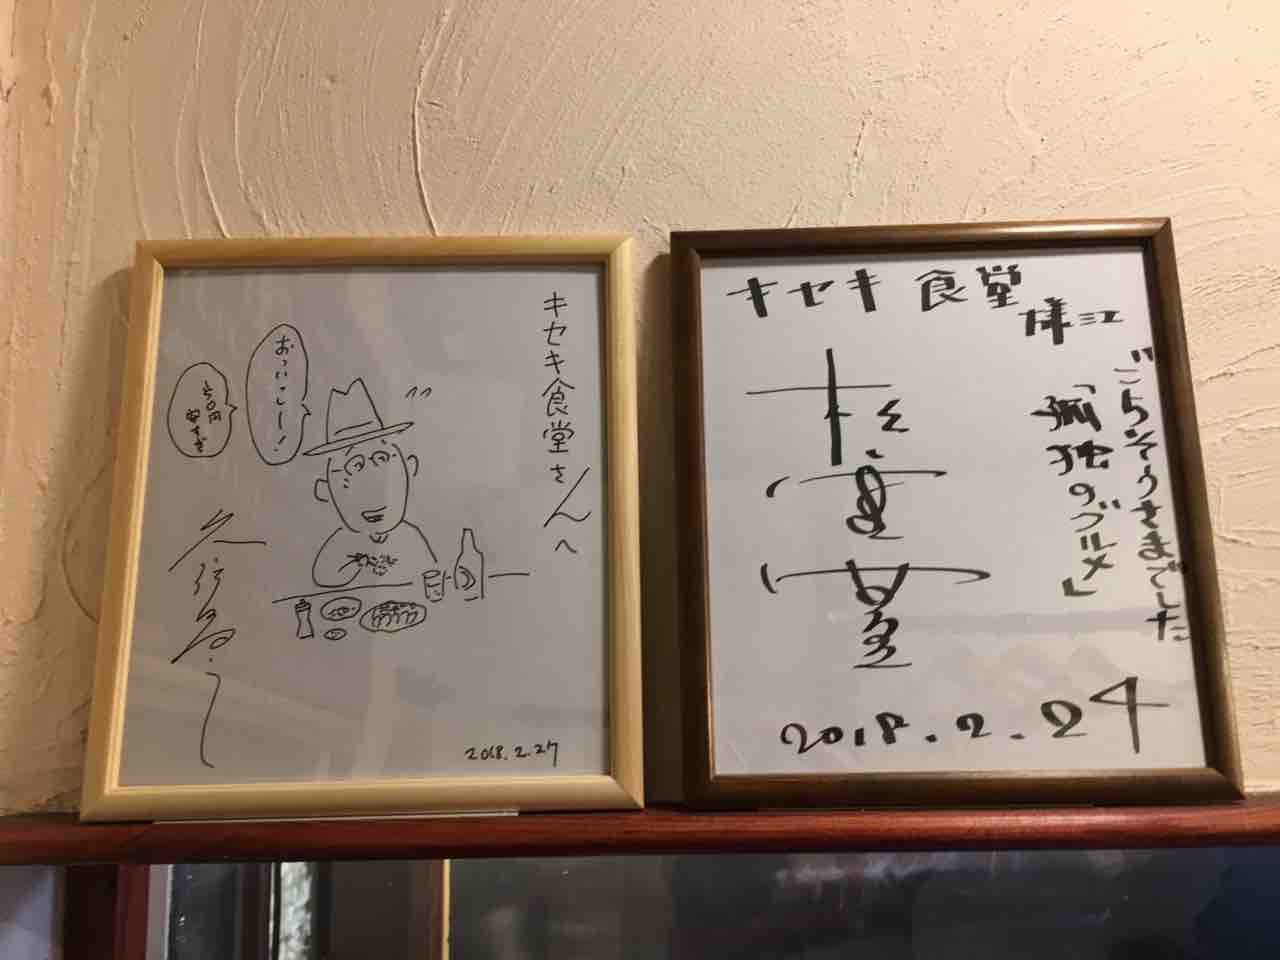 キセキ食堂さんへ
おっいしー!
久住昌之
2018.2.27
キセキ食堂
様江
ごちそうさまでした
「孤独のグルメ」
松重豊
2018.2.24